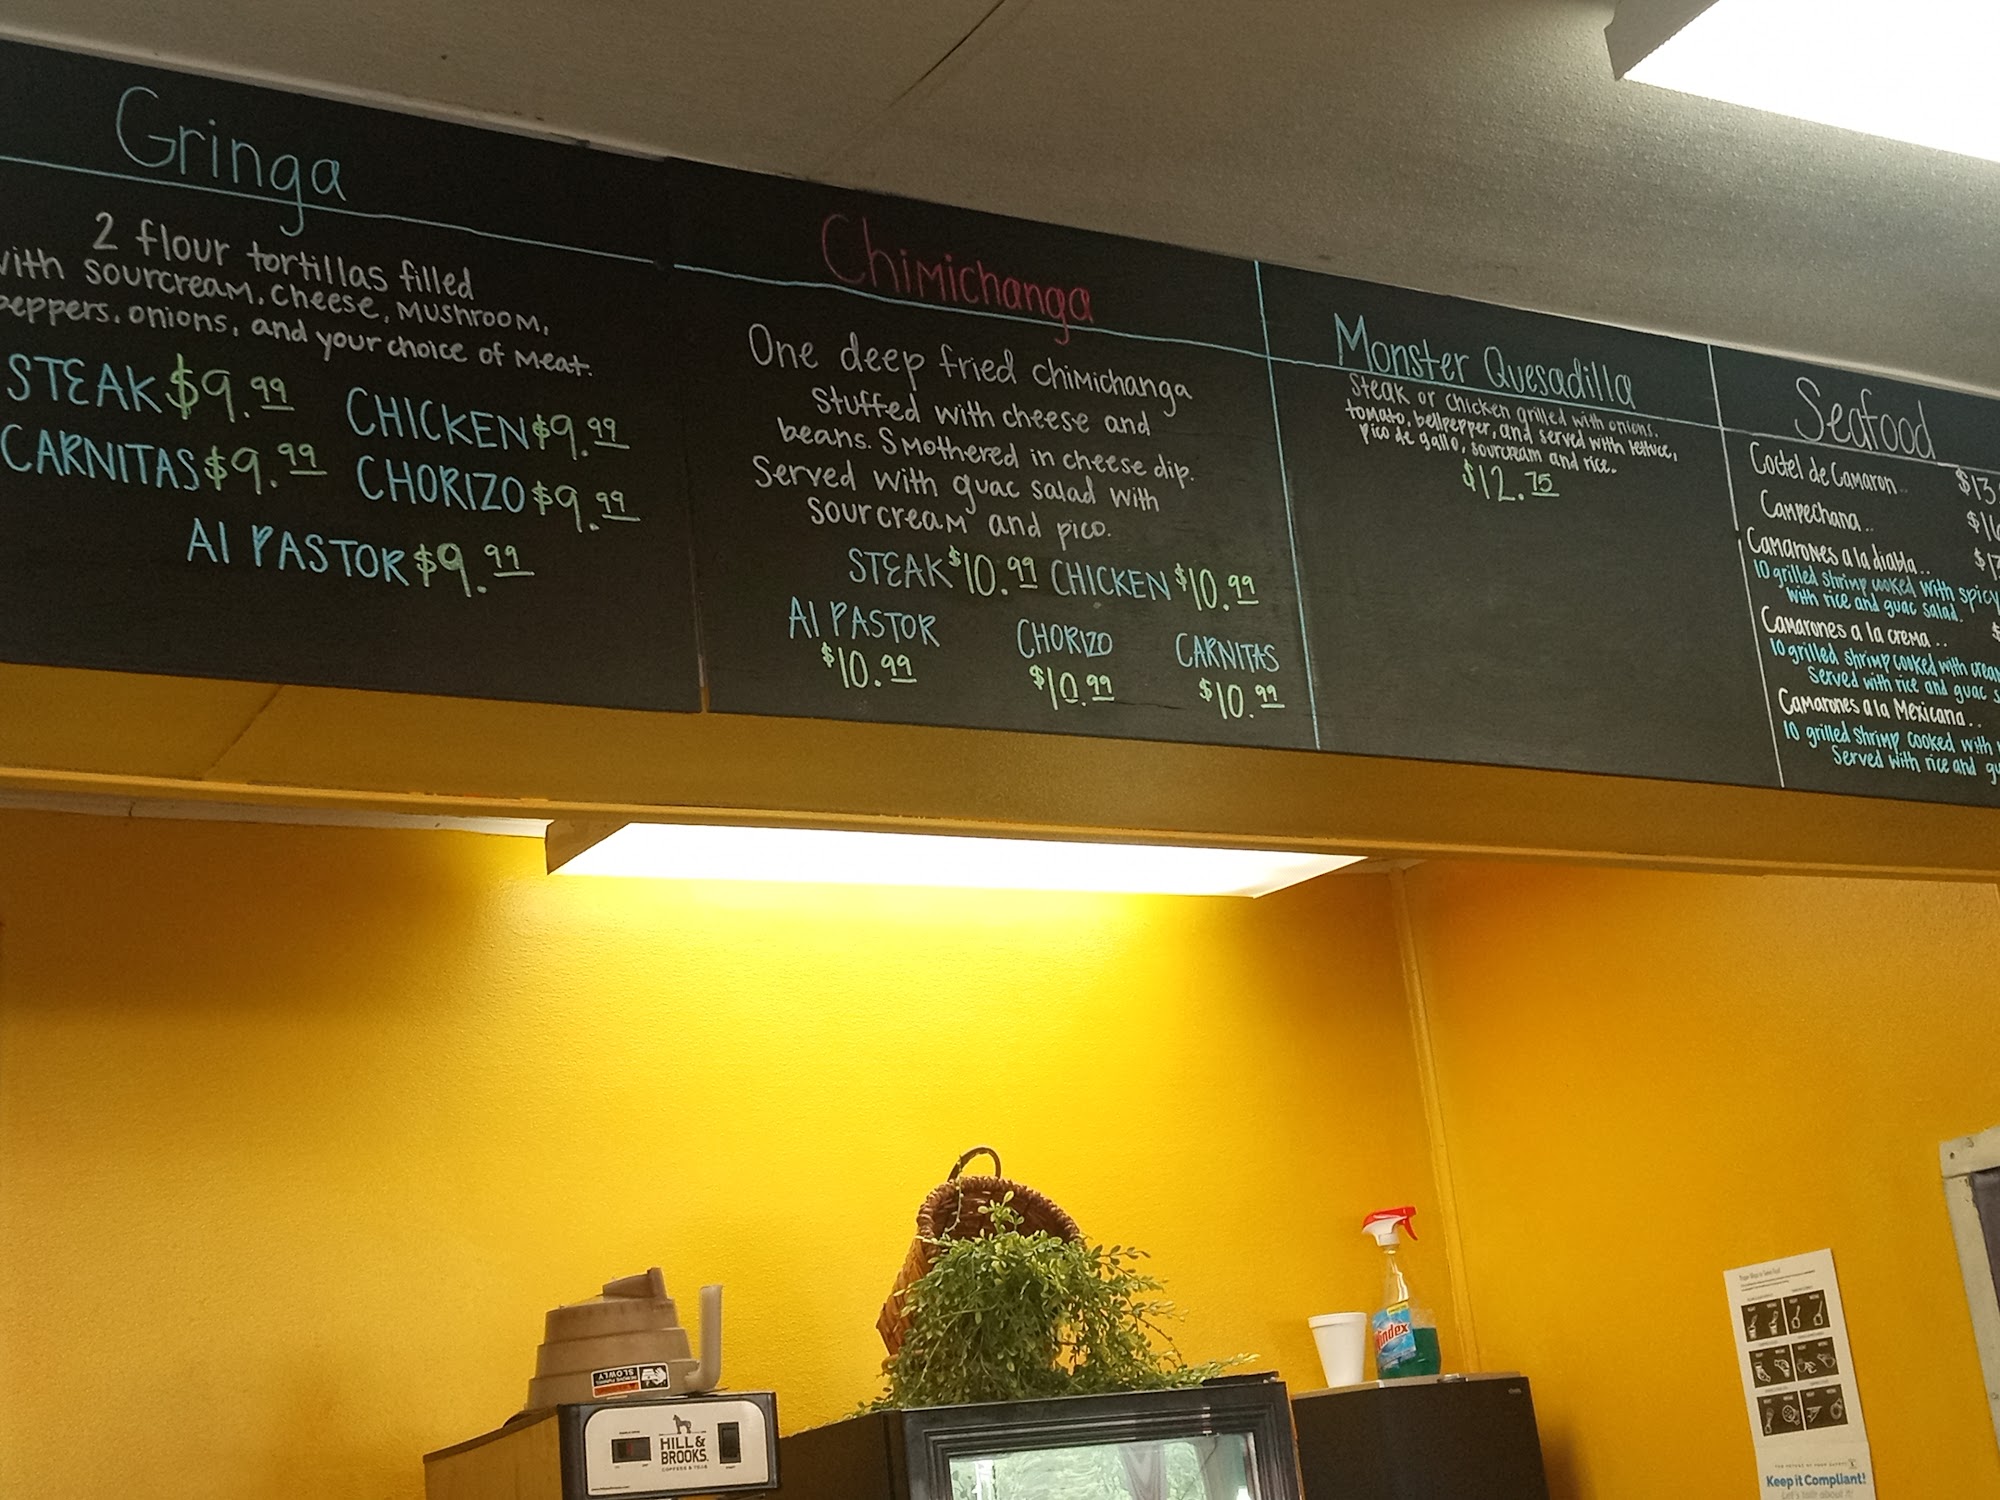 Gringa
2 flour tortillas filled
with sourcream, cheese, mushroom,
peppers, onions, and your choice of meat.
STEAK $9.99 CHICKEN $9.99
CARNITAS $9.99 CHORIZO $9.99
Al PASTOR $9.99
Chimichanga
One deep fried chimichanga
stuffed with cheese and
beans. Smothered in cheese dip.
Served with guac salad with
sourcream and pico.
STEAK $10.99 CHICKEN $10.99
Al PASTOR CHORIZO CARNITAS
$10.99 $10.99 $10.99
Monster Quesadilla
Steak or chicken grilled with onions,
tomato, bellpepper, and served with lettuce,
pico de gallo, sourcream and rice.
$12.75
Seafood
Coctel de Camaron.. $13
Campechana..
Camarones a la diabla..
10 grilled shrimp cooked with spicy
with rice and guac salad.
Camarones a la crema..
10 grilled shrimp cooked with
Served with rice and guac
Camarones a la Mexicana..
10 grilled shrimp cooked with
Served with rice and
SLOWLY
HILL &
BROOKS.
COFFEES & TEAS
Windex
Keep it Compliant!
Let's talk about it!